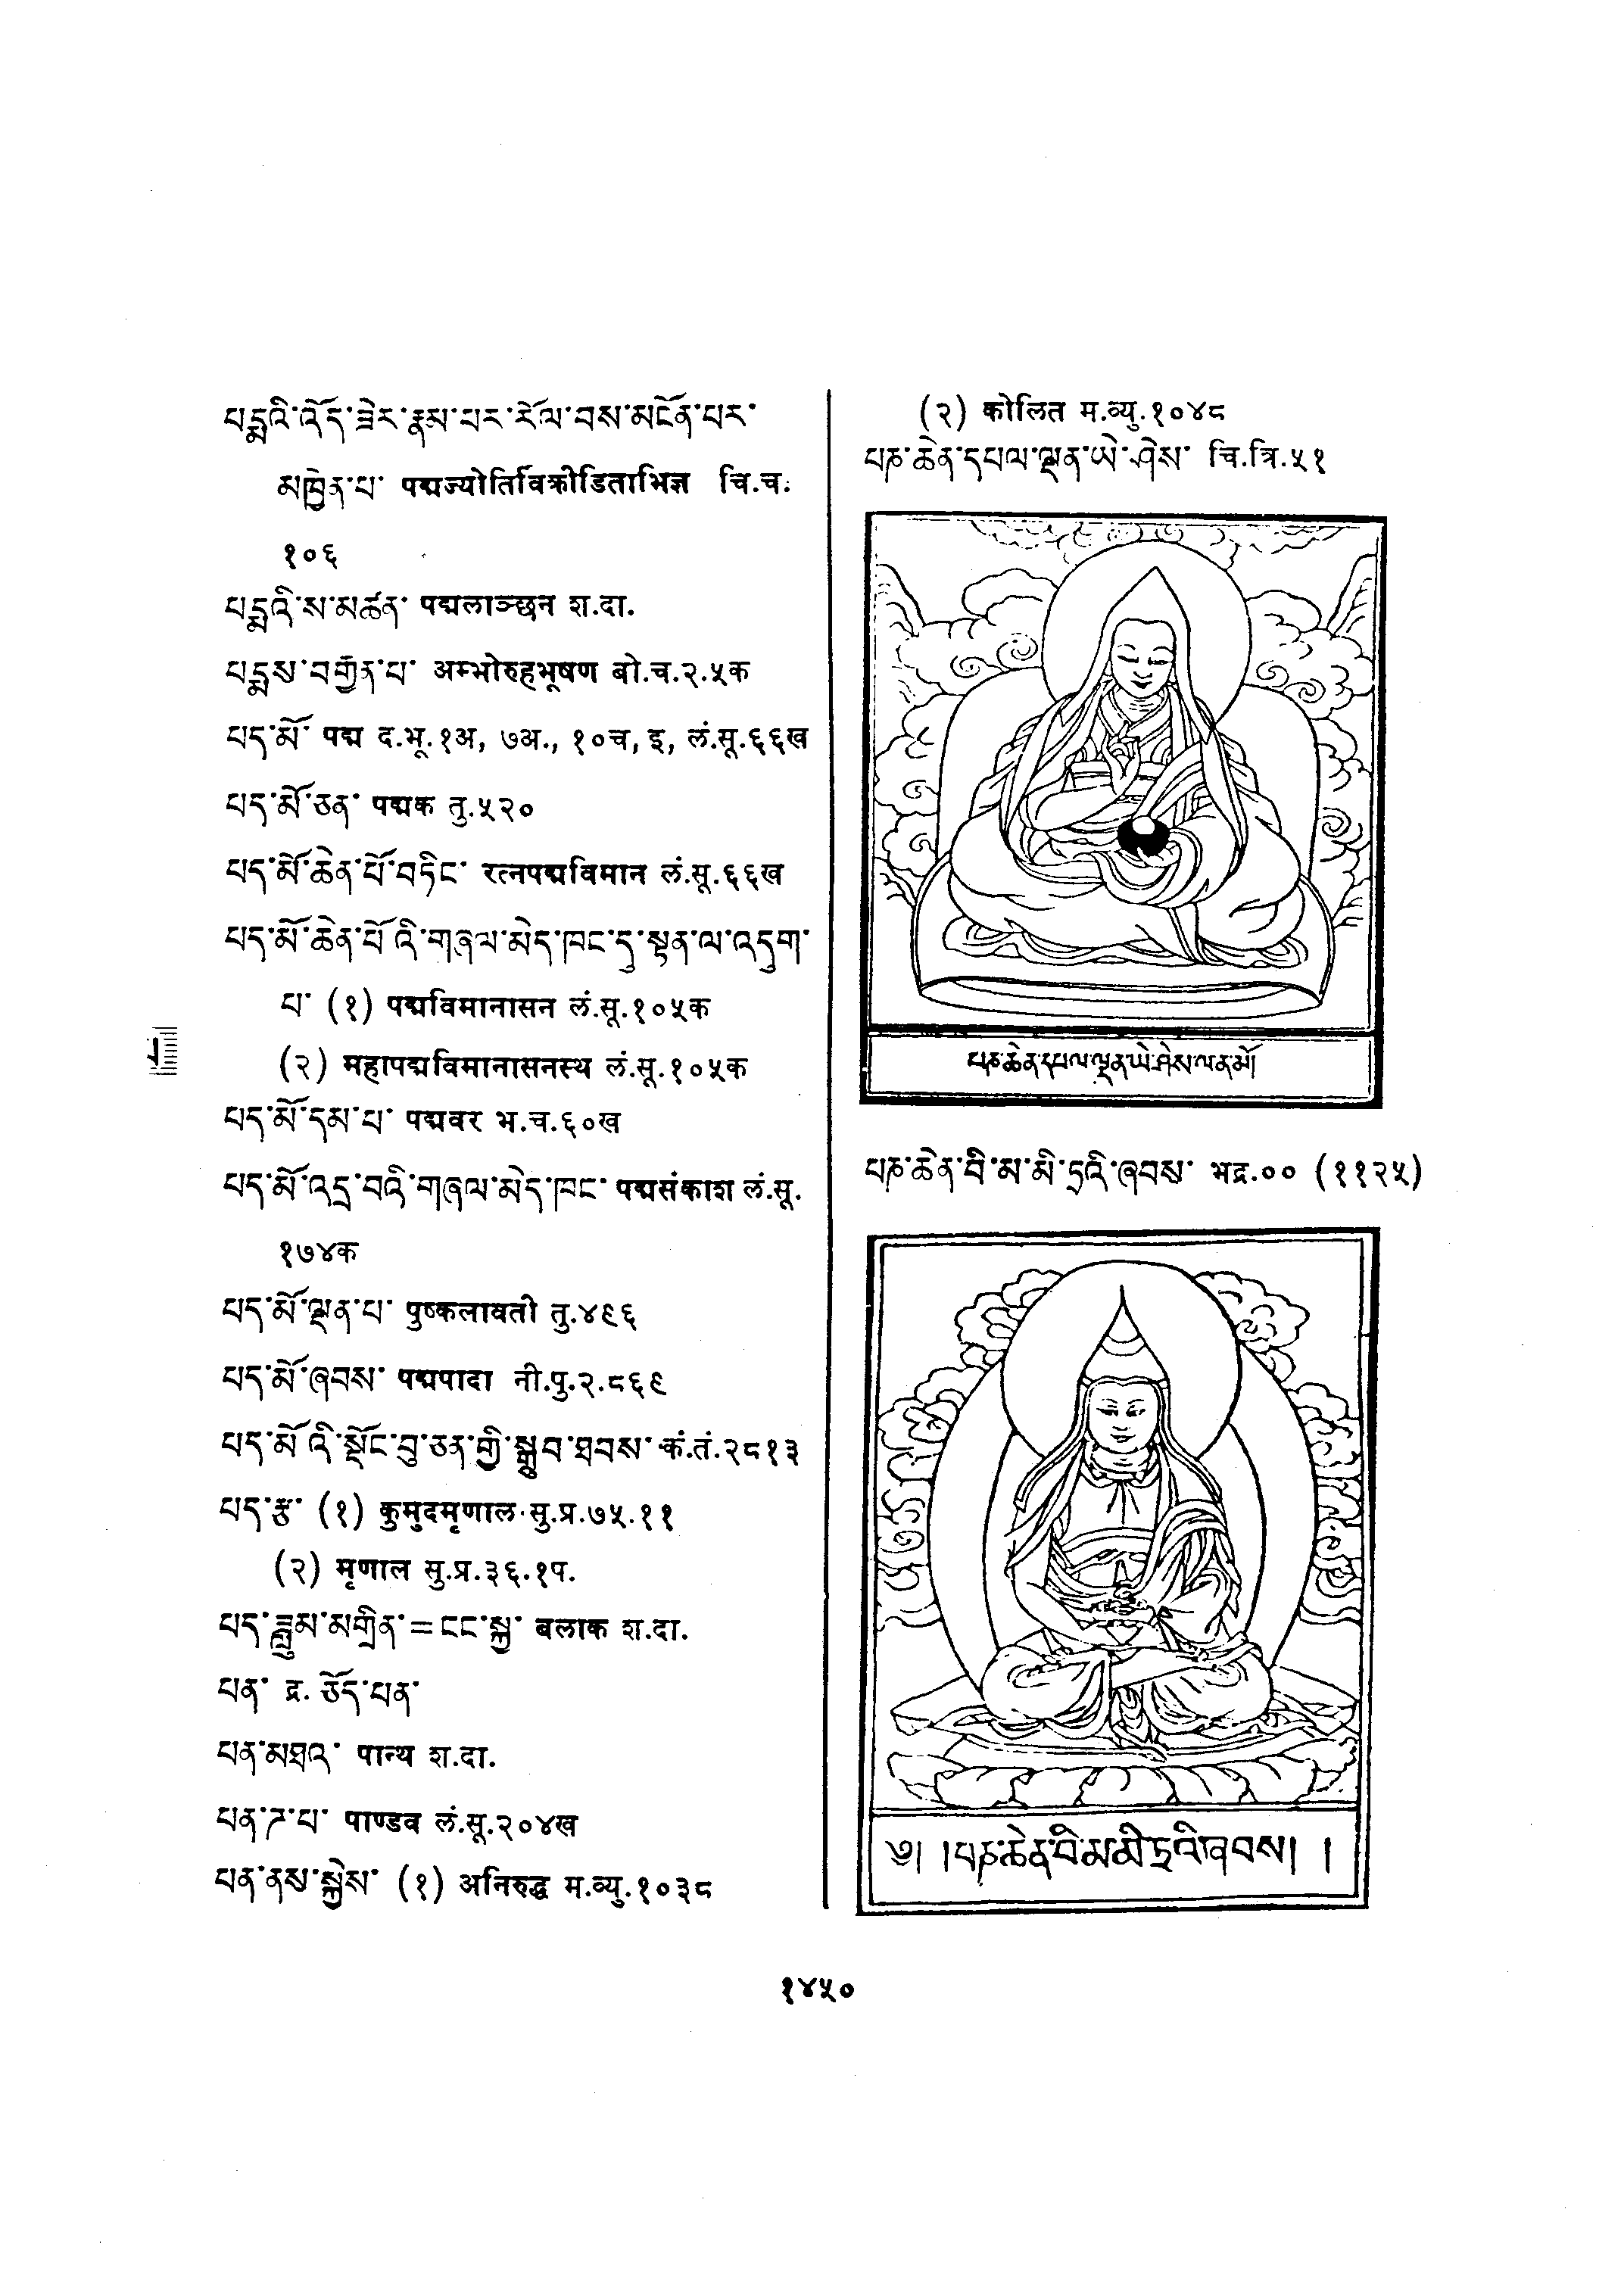 པདྨའི་འོད་ཟེར་རྣམ་པར་རོལ་བས་མངོན་པར་
མཁྱེན་པ་ पद्मज्योतिर्विक्रीडिताभिज्ञ चि.च.
१०६
པདྨའི་ས་མཚན་ पद्मलाञ्छन श.दा.
པདྨས་བརྒྱན་པ་ अम्भोरुहभूषण बो.च.२.५क
པད་མོ་ पद्म द.भू.१अ, ७अ., १०च, इ, लं.सू.६६ख
པད་མོ་ཅན་ पद्मक तु.५२०
པད་མོ་ཆེན་པོ་བཏིང་ रत्नपद्मविमान लं.सू.६६ख
པད་མོ་ཆེན་པོ འི་གཞལ་མེད་ཁང་དུ་སྟན་ལ་འདུག་
པ་ (१) पद्मविमानासन लं.सू.१०५क
(२) महापद्मविमानासनस्थ लं.सू.१०५क
པད་མོ་དམ་པ་ पद्मवर भ.च.६०ख
པད་མོ་འདྲ་བའི་གཞལ་མེད་ཁང་ पद्मसंकाश लं.सू.
१७४क
པད་མོ་ལྡན་པ་ पुष्कलावती तु.४९६
པད་མོ་ཞབས་ पद्मपादा नी.पु.२.८६९
པད་མོ འི་སྡོང་བུ་ཅན་གྱི་སྒྲུབ་ཐབས་ कं.तं.२८१३
པད་རྩ་ (१) कुमुदमृणाल सु.प्र.७५.११
(२) मृणाल सु.प्र.३६.१प.
པད་ཟླུམ་མགྲིན་=ངང་སྐྱ་ बलाक श.दा.
པན་ द्र. ཅོད་པན་
པན་མཐའ་ पान्थ श.दा.
པན་ཌ་པ་ पाण्डव लं.सू.२०४ख
པན་ནས་སྐྱེས་ (१) अनिरुद्ध म.व्यु.१०३८
(२) कोलित म.व्यु.१०४८
པཎ་ཆེན་དཔལ་ལྡན་ཡེ་ཤེས་ चि.त्रि.५१
པཎ་ཆེན་དཔལ་ལྡན་ཡེ་ཤེས་ལ་ན་མོ།
པཎ་ཆེན་བི་མ་མི་ཏྲའི་ཞབས་ भद्र.०० (११२५)
༧། །པཎ་ཆེན་བི་མ་མི་ཏྲའི་ཞབས། །
१४५०